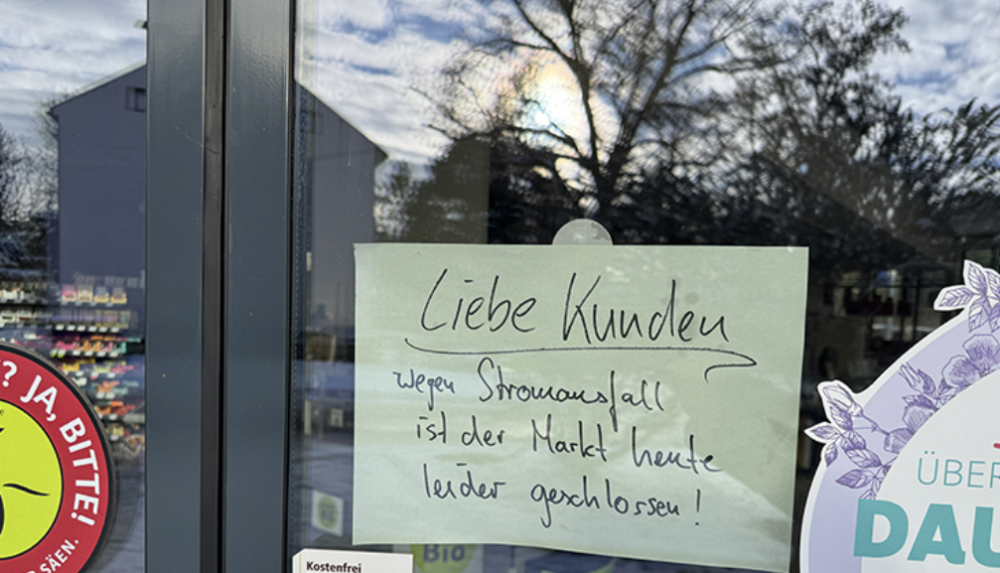 Liebe Kunden
wegen Stromausfall
ist der Markt heute
leider geschlossen!
? JA, BITTE!
SÄEN.
Kostenfrei
Bio
ÜBER
DAU